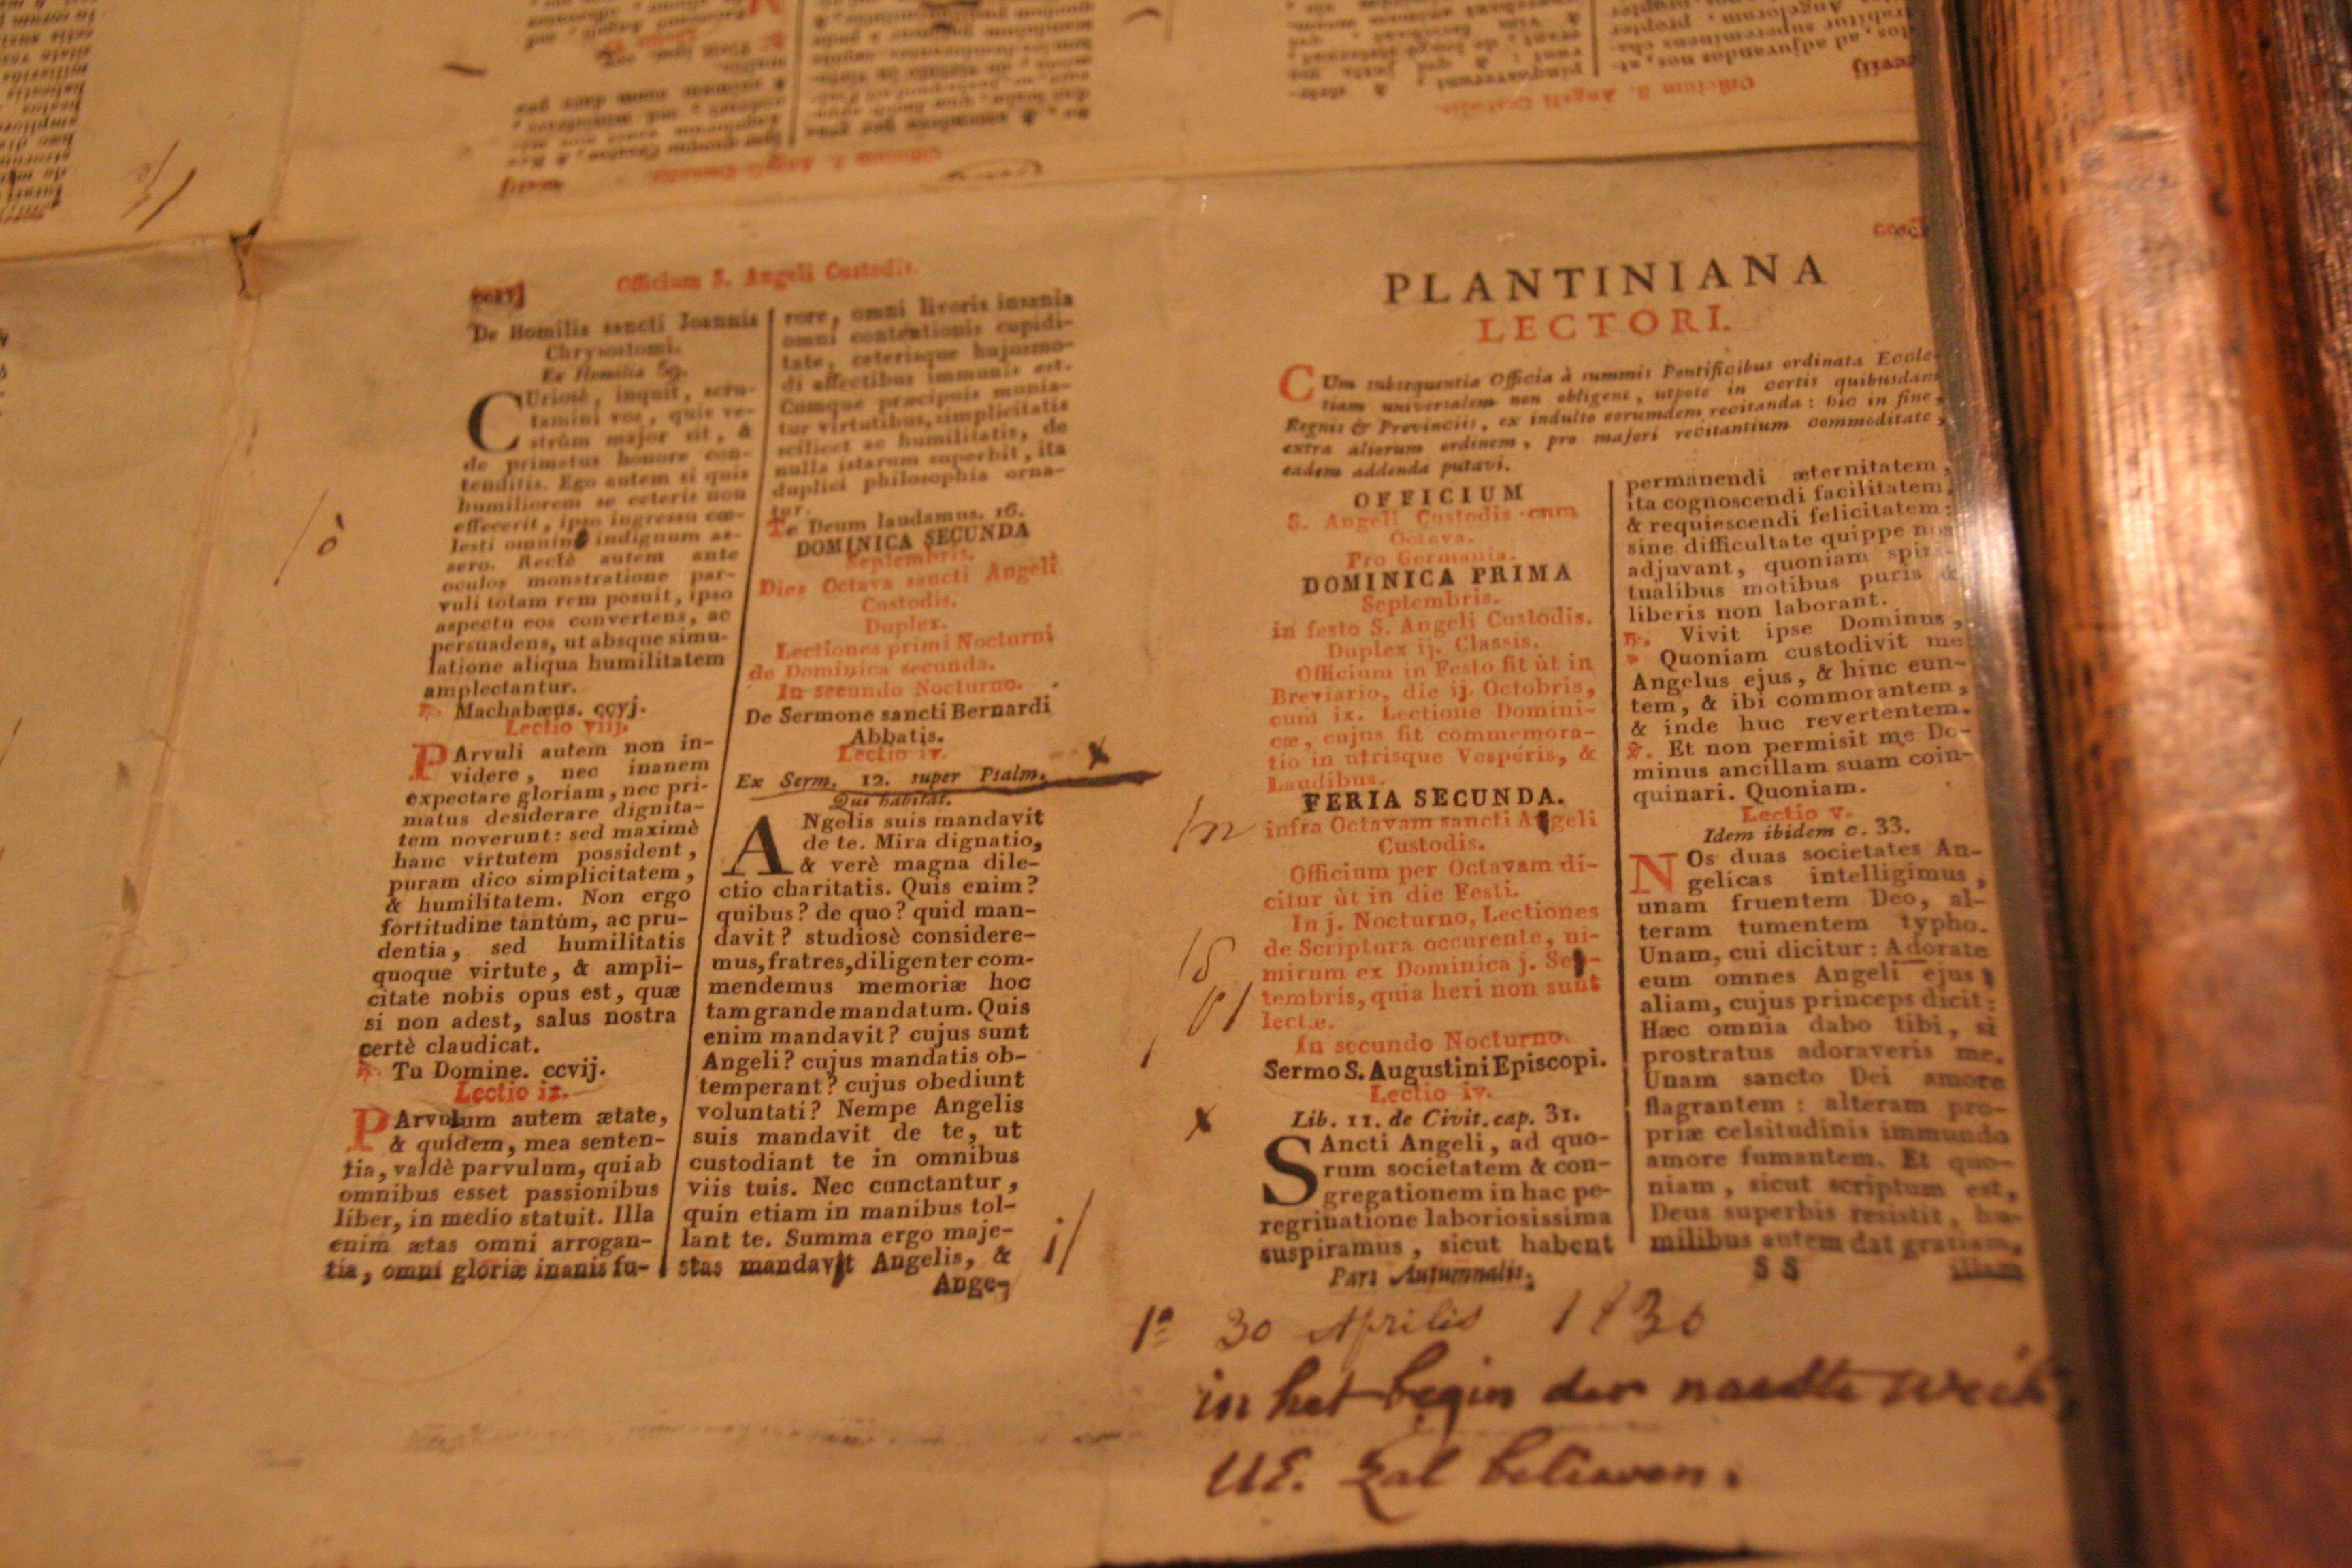 Officium S. Angeli Custodis.
De Homilia sancti Joannis
Chrysostomi.
Ex Homilia 59.
CUriosè, inquit, scru-
tamini vos, quis ve-
strûm major sit, &
de primatus honore con-
tenditis. Ego autem si quis
humiliorem se ceteris non
effecerit, ipso ingressu cœ-
lesti omnino indignum as-
sero. Rectè autem ante
oculos monstratione par-
vuli totam rem posuit, ipso
aspectu eos convertens, ac
persuadens, ut absque simu-
latione aliqua humilitatem
amplectantur.
℟. Machabæus. ccvj.
Lectio viij.
PArvuli autem non in-
videre, nec inanem
expectare gloriam, nec pri-
matus desiderare dignita-
tem noverunt: sed maximè
hanc virtutem possident,
puram dico simplicitatem,
& humilitatem. Non ergo
fortitudine tantùm, ac pru-
dentia, sed humilitatis
quoque virtute, & ampli-
citate nobis opus est, quæ
si non adest, salus nostra
certè claudicat.
℟. Tu Domine. ccvij.
Lectio ix.
PArvulum autem ætate,
& quidem, mea senten-
tia, valdè parvulum, qui ab
omnibus esset passionibus
liber, in medio statuit. Illa
enim ætas omni arrogan-
tia, omni gloriæ inanis fu-
rore, omni livoris insania
omni contentionis cupidi-
tate, ceterisque hujusmo-
di affectibus immunis est.
Cumque præcipuis munia-
tur virtutibus, simplicitatis
scilicet ac humilitatis, de
nulla istarum superbit, ita
duplici philosophia orna-
tur.
Te Deum laudamus. 16.
DOMINICA SECUNDA
Septembris.
Dies Octava sancti Angeli
Custodis.
Duplex.
Lectiones primi Nocturni
de Dominica secunda.
In secundo Nocturno.
De Sermone sancti Bernardi
Abbatis.
Lectio iv.
Ex Serm. 12. super Psalm.
Qui habitat.
ANgelis suis mandavit
de te. Mira dignatio,
& verè magna dile-
ctio charitatis. Quis enim?
quibus? de quo? quid man-
davit? studiosè considere-
mus, fratres, diligenter com-
mendemus memoriæ hoc
tam grande mandatum. Quis
enim mandavit? cujus sunt
Angeli? cujus mandatis ob-
temperant? cujus obediunt
voluntati? Nempe Angelis
suis mandavit de te, ut
custodiant te in omnibus
viis tuis. Nec cunctantur,
quin etiam in manibus tol-
lant te. Summa ergo maje-
stas mandavit Angelis, &
Ange-
PLANTINIANA
LECTORI.
CUm subsequentia Officia à summis Pontificibus ordinata Eccle-
siam universalem non obligent, utpote in certis quibusdam
Regnis & Provinciis, ex indulto eorumdem recitanda: hic in fine,
extra aliorum ordinem, pro majori recitantium commoditate,
eadem addenda putavi.
OFFICIUM
S. Angeli Custodis cum
Octava.
Pro Germania.
DOMINICA PRIMA
Septembris.
in festo S. Angeli Custodis.
Duplex ij. Classis.
Officium in Festo fit ùt in
Breviario, die ij. Octobris,
cum ix. Lectione Domini-
cæ, cujus fit commemora-
tio in utrisque Vespéris, &
Laudibus.
FERIA SECUNDA.
infra Octavam sancti Angeli
Custodis.
Officium per Octavam di-
citur ùt in die Festi.
In j. Nocturno, Lectiones
de Scriptura occurente, ni-
mirum ex Dominica j. Sep-
tembris, quia heri non sunt
lectæ.
In secundo Nocturno.
Sermo S. Augustini Episcopi.
Lectio iv.
Lib. 11. de Civit. cap. 31.
SAncti Angeli, ad quo-
rum societatem & con-
gregationem in hac pe-
regrinatione laboriosissima
suspiramus, sicut habent
Pars Autumnalis.
permanendi æternitatem,
ita cognoscendi facilitatem,
& requiescendi felicitatem:
sine difficultate quippe nos
adjuvant, quoniam spiri-
tualibus motibus puris &
liberis non laborant.
℟. Vivit ipse Dominus,
* Quoniam custodivit me
Angelus ejus, & hinc eun-
tem, & ibi commorantem,
& inde huc revertentem.
℣. Et non permisit me Do-
minus ancillam suam coin-
quinari. Quoniam.
Lectio v.
Idem ibidem c. 33.
NOs duas societates An-
gelicas intelligimus,
unam fruentem Deo, al-
teram tumentem typho.
Unam, cui dicitur: Adorate
eum omnes Angeli ejus;
aliam, cujus princeps dicit:
Hæc omnia dabo tibi, si
prostratus adoraveris me.
Unam sancto Dei amore
flagrantem: alteram pro-
priæ celsitudinis immundo
amore fumantem. Et quo-
niam, sicut scriptum est,
Deus superbis resistit, hu-
milibus autem dat gratiam,
SS illam
1ª 30 Aprilis 1830
in het begin der naeste week,
UE. zal believen.